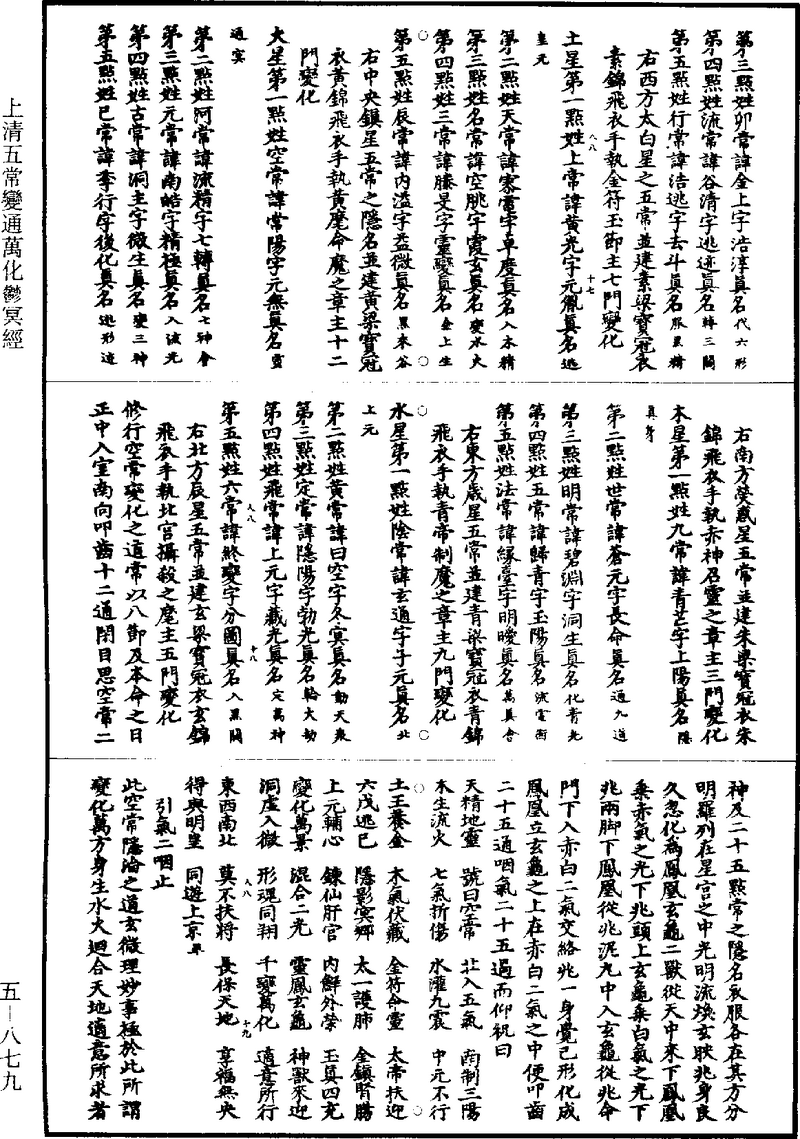 上清五常變通萬化鬱冥經
五－八七九
第三點姓卯常諱金上字浩淳眞名代六形
第四點姓流常諱谷清字逃迹眞名轉三關
第五點姓行常諱浩逃字去斗眞名服五精
右西方太白星之五常並建素梁寶冠衣
素錦飛衣手執金符玉節主七門變化
土星第一點姓上常諱黃光字元胤眞名逃
皇元
第二點姓天常諱字卓度眞名入木精
第三點姓名常諱空胱字霞玄眞名變水火
第四點姓三常諱字靈變眞名金上生
第五點姓辰常諱內溢字益微眞名黑來谷
右中央鎮星五常之隱名並建黃梁寶冠
衣黃錦飛衣手執黃麾命魔之章主十二
門變化
火星第一點姓空常諱常陽字元無眞名靈
通冥
第二點姓河常諱流精字七轉眞名七神會
第三點姓元常諱南皓字精極眞名入流光
第四點姓古常諱洞主字微生眞名變三神
第五點姓巳常諱李行字後化眞名逃形迹
右南方熒惑星五常並建朱梁寶冠衣朱
錦飛衣手執赤神召靈之章主三門變化
木星第一點姓九常諱青芒字上陽眞名隱
眞身
第二點姓世常諱蒼元字長命眞名通九道
第三點姓明常諱碧淵字洞生眞名化青光
第四點姓五常諱歸青字玉陽眞名流電衝
第五點姓法常諱緣臺字明曖眞名萬具會
右東方歲星五常並建青梁寶冠衣青錦
飛衣手執青帝制魔之章主九門變化
水星第一點姓陰常諱玄通字子元眞名北
上元
第二點姓黃常諱曰空字冬冥眞名動天衆
第三點姓定常諱隱陽字勃光眞名輪大劫
第四點姓飛常諱上元字藏光眞名定萬神
第五點姓六常諱終變字分圖眞名入黑關
右北方辰星五常並建玄梁寶冠衣玄錦
飛衣手執北宮攝殺之麾主五門變化
修行空常變化之道常以八節及本命之日
正中入室南向叩齒十二通閉目思空常二
神及二十五點常之隱名衣服各在其方分
明羅列在星宮之中光明流煥玄映兆身良
久忽化爲鳳凰玄龜二獸從天中來下鳳凰
乘赤氣之光下兆頭上玄龜乘白氣之光下
兆兩脚下鳳凰從兆泥丸中入玄龜從兆命
門下入赤白二氣交絡兆一身覺己形化成
鳳凰立玄龜之上在赤白二氣之中便叩齒
二十五通咽氣二十五過而仰祝曰
天精地靈　號曰空常　壯入五氣　南制三陽
木生流火　七氣折傷　水灌九震　中元不行
土王養金　木氣伏藏　金符命靈　太帝扶迎
六戊逃巳　隱影冥鄉　太一護肺　金鎮腎腸
上元輔心　鍊仙肝官　內鮮外榮　玉眞四充
變化萬景　混合二光　靈鳳玄龜　神獸來迎
洞虛入微　形魂同翔　千變萬化　適意所行
東西南北　莫不扶將　長保天地　享福無央
得與明皇　同遊上京畢
引氣二咽止
此空常隱淪之道玄微理妙事極於此所謂
變化萬方身生水火迴合天地適意所求者